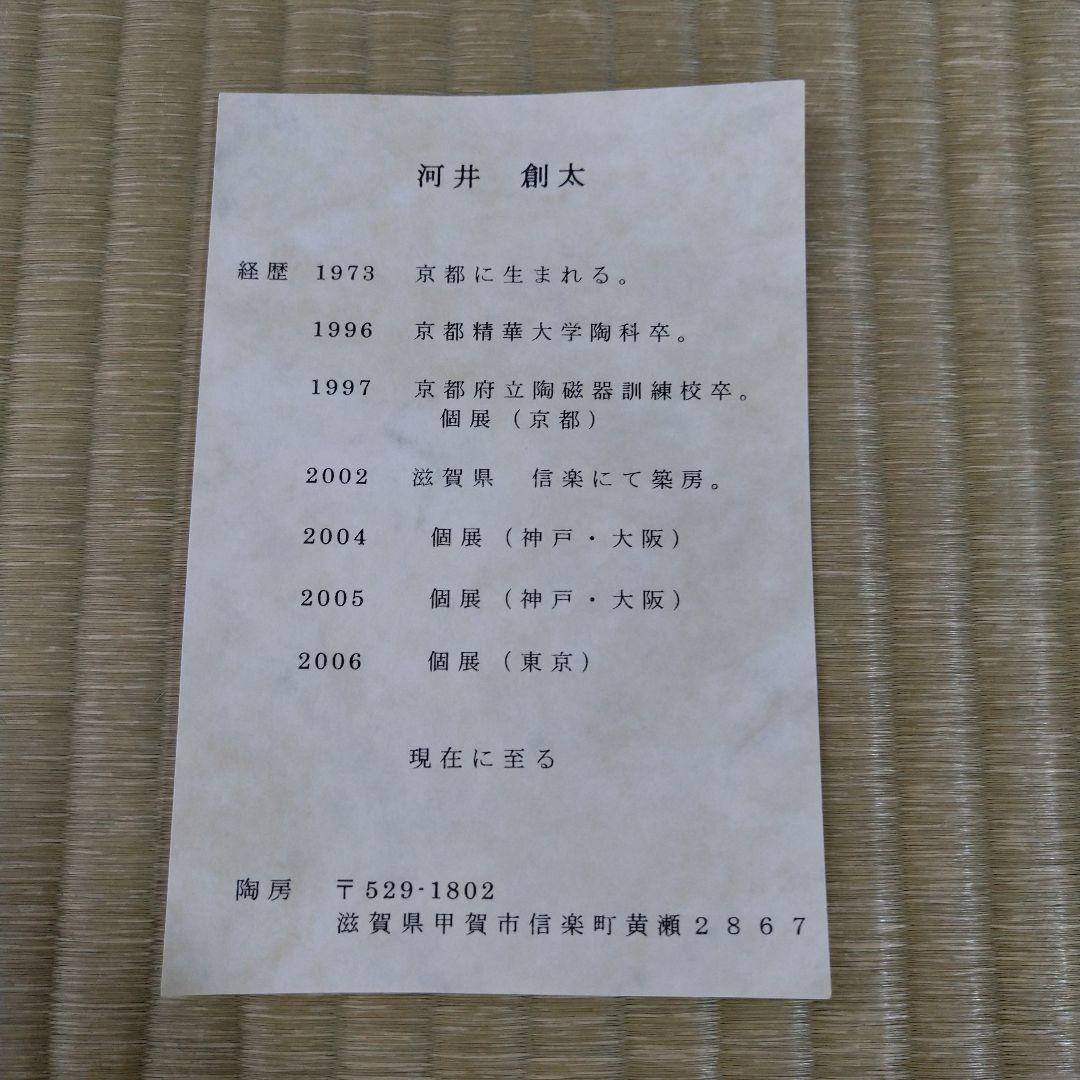 河井　創太
経歴 1973 京都に生まれる。
1996 京都精華大学陶科卒。
1997 京都府立陶磁器訓練校卒。
個展（京都）
2002 滋賀県　信楽にて築房。
2004 個展（神戸・大阪）
2005 個展（神戸・大阪）
2006 個展（東京）
現在に至る
陶房 〒529-1802
滋賀県甲賀市信楽町黄瀬２８６７